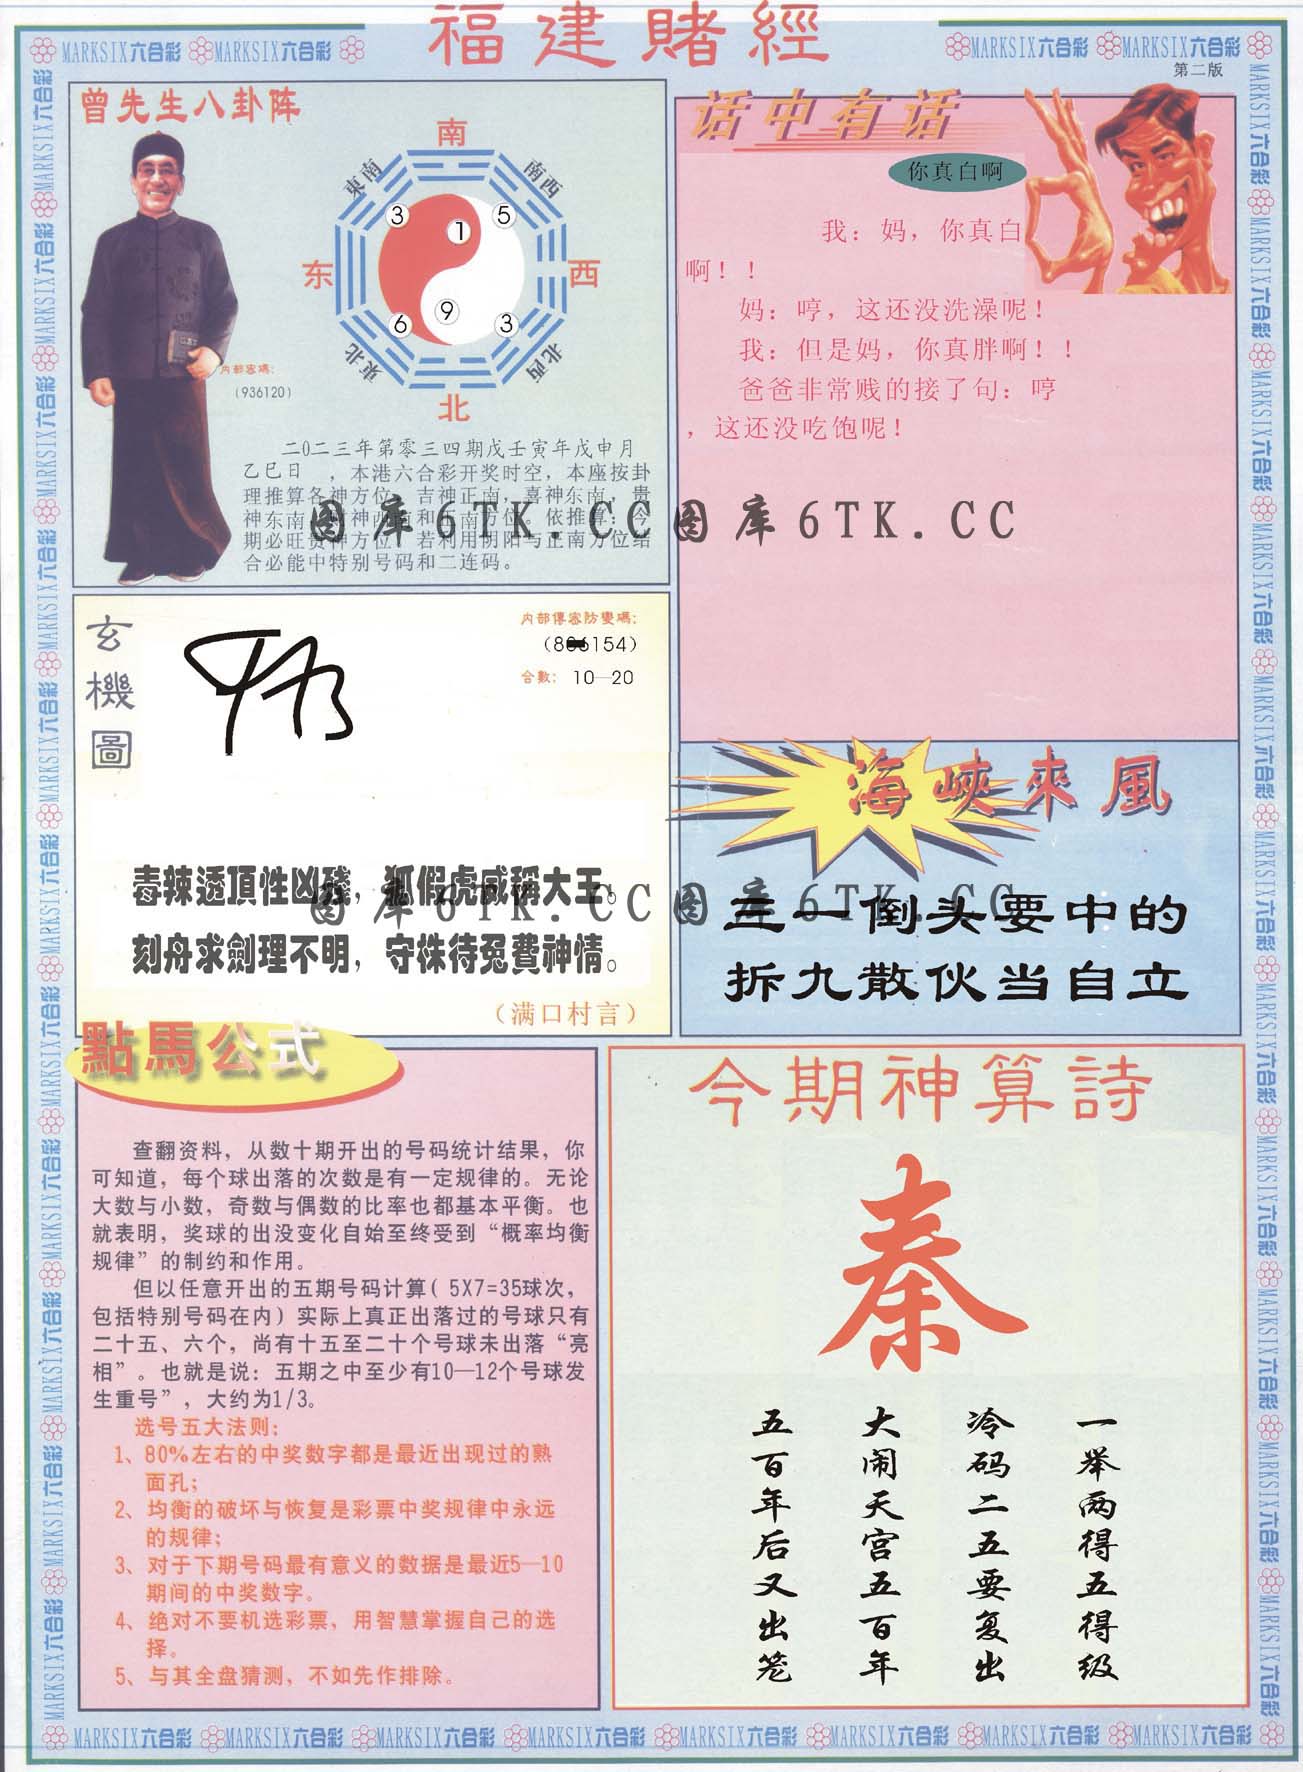 福建賭經
MARKSIX六合彩 MARKSIX六合彩
MARKSIX六合彩 MARKSIX六合彩
第二版
曾先生八卦阵
南
東南
南西
3
1
5
东
西
6
9
3
東北
北西
北
内部密碼:
(936120)
二0二三年第零三四期戊壬寅年戊申月
乙巳日 ,本港六合彩开奖时空,本座按卦
理推算各神方位。吉神正南,喜神东南,贵
神东南,
和正南方位。依推算:今
期必旺贵神方位。若利用阴阳与正南方位结
合必能中特别号码和二连码。
话中有话
你真白啊
我:妈,你真白
啊!!
妈:哼,这还没洗澡呢!
我:但是妈,你真胖啊!!
爸爸非常贱的接了句:哼
,这还没吃饱呢!
图库6TK.CC图库6TK.CC
玄機圖
内部傳密防變碼:
154)
合數: 10—20
毒辣透頂性凶殘,狐假虎威稱大王。
刻舟求劍理不明,守株待兔費神情。
(满口村言)
海峽來風
图库6TK.CC图库6TK.CC
三一倒头要中的
拆九散伙当自立
點馬公式
查翻资料,从数十期开出的号码统计结果,你
可知道,每个球出落的次数是有一定规律的。无论
大数与小数,奇数与偶数的比率也都基本平衡。也
就表明,奖球的出没变化自始至终受到“概率均衡
规律”的制约和作用。
但以任意开出的五期号码计算( 5X7=35球次,
包括特别号码在内)实际上真正出落过的号球只有
二十五、六个,尚有十五至二十个号球未出落“亮
相”。也就是说:五期之中至少有10—12个号球发
生重号”,大约为1/3。
选号五大法则:
1、80%左右的中奖数字都是最近出现过的熟
面孔;
2、均衡的破坏与恢复是彩票中奖规律中永远
的规律;
3、对于下期号码最有意义的数据是最近5—10
期间的中奖数字。
4、绝对不要机选彩票,用智慧掌握自己的选
择。
5、与其全盘猜测,不如先作排除。
今期神算詩
秦
一举两得五得级
冷码二五要复出
大闹天宫五百年
五百年后又出笼
MARKSIX六合彩 MARKSIX六合彩 MARKSIX六合彩 MARKSIX六合彩 MARKSIX六合彩 MARKSIX六合彩 MARKSIX六合彩 MARKSIX六合彩